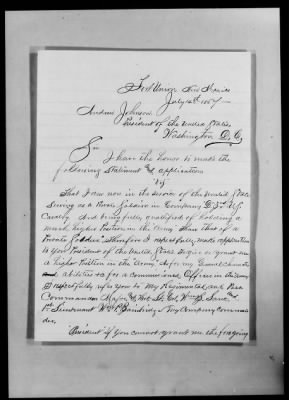 Fort Union New Mexico
July 16th 1867
Andrew Johnson
President of the United States
Washington D. C.
Sir
I have the honor to make the
following Statment and application
That I am now in the Service of the United States
Serving as a Private Soldier in Company 3rd U.S.
Cavalry And being fully qualified of holding a
much higher Position in the Army than that of a
Private Soldier Therefore I respectfully make application
to you President of the United States to grant me
a higher Position in the Army As for my General Character
and abilities to for a Commissioned Officer in the Army
I respectfully refer you to My Regimental and Post
Commander Major and Bvt Lt Col Wm B.
1st Lieutenant Wm P. Bainbridge My Company Comman
der,
President if you cannot grant me the foregoing